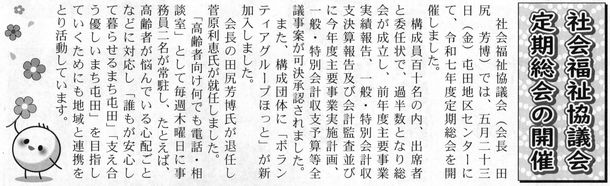 社会福祉協議会
定期総会の開催
社会福祉協議会(会長 田
尻 芳博)では、五月二十三
日(金)屯田地区センターに
て、令和七年度定期総会を開
催しました。
構成員百十名の内、出席者
と委任状で、過半数となり総
会が成立し、前年度主要事業
実績報告、一般・特別会計収
支決算報告及び会計監査並び
に今年度主要事業実施計画、
一般・特別会計収支予算等全
議事案が可決承認されました。
また、構成団体に「ボラン
ティアグループほっと」が新
加入しました。
会長の田尻芳博氏が退任し
菅原利恵氏が就任しました。
「高齢者向け何でも電話・相
談室」として毎週木曜日に事
務員二名が常駐し、たとえば、
高齢者が悩んでいる心配ごと
などに対応し「誰もが安心し
て暮らせるまち屯田」「支え合
う優しいまち屯田」を目指し
ていくためにも地域と連携を
とり活動しています。